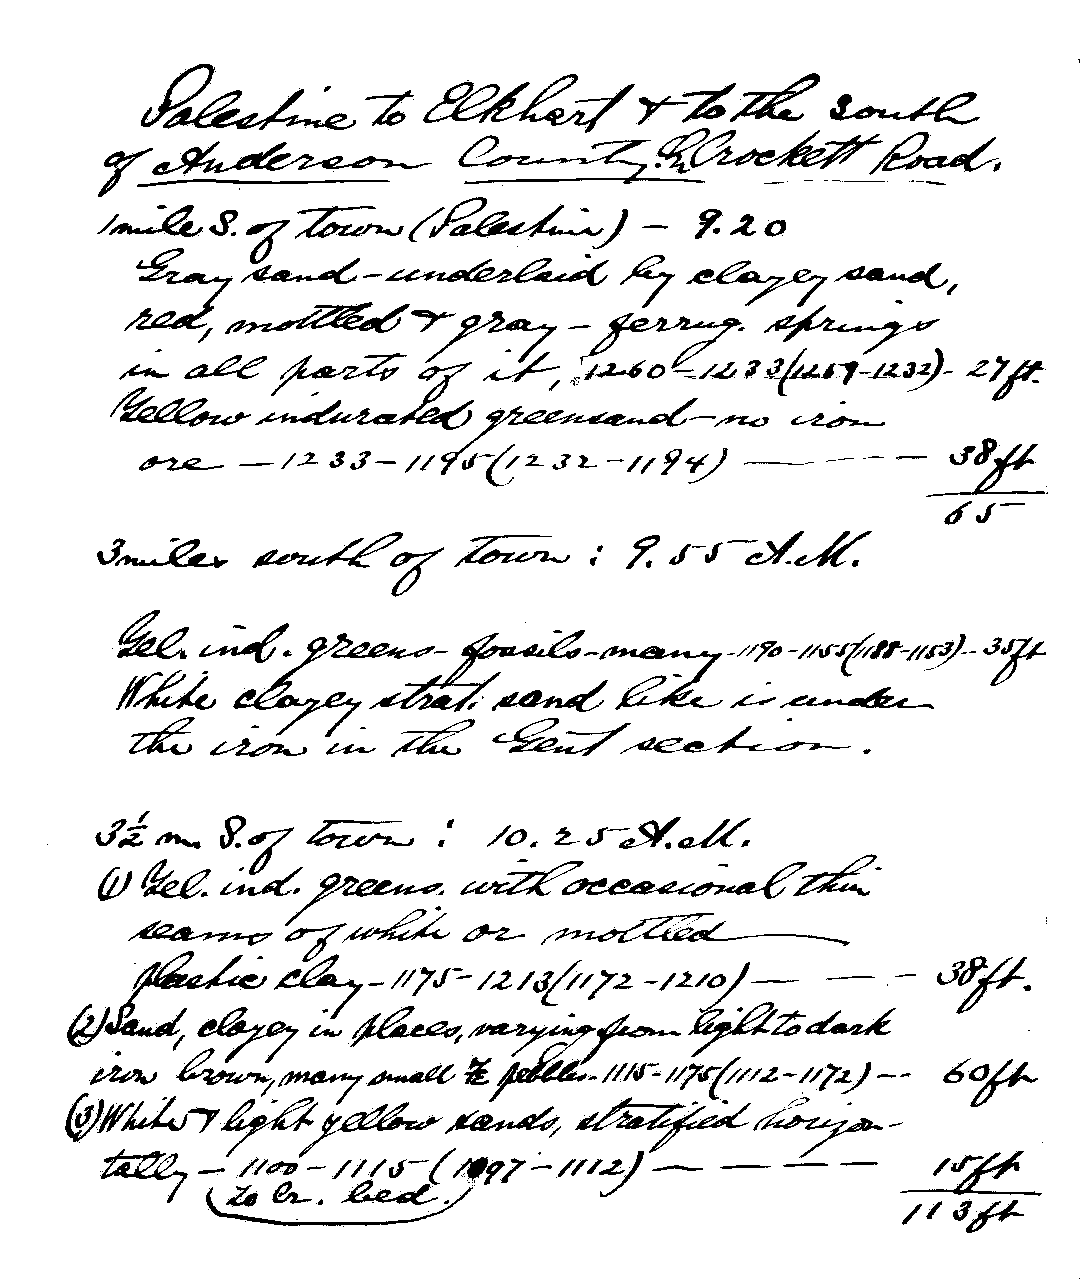 Palestine to Elkhart & to the south
of Anderson County. Crockett Road.
1 mile S. of town (Palestine) - 9.20
Gray sand - underlaid by clayey sand,
red, mottled & gray - ferrug. springs
in all parts of it, 1260 - 1233 (1259-1232) - 27 ft.
Yellow indurated greensand - no iron
ore - 1233 - 1195 (1232 - 1194) - - - - 38 ft
65
3 miles south of town : 9.55 A.M.
Yel. ind. greens - fossils - many - 1190 - 1155 (1188-1153) - 35 ft
White clayey strat. sand like is under
the iron in the Gent section.
3½ m. S. of town : 10.25 A.M.
(1) Yel. ind. greens. with occasional thin
seams of white or mottled
plastic clay - 1175 - 1213 (1172 - 1210) - - - 38 ft.
(2) Sand, clayey in places, varying from light to dark
iron brown, many small pebbles - 1115 - 1175 (1112 - 1172) - - 60 ft
(3) White & light yellow sands, stratified horizon-
tally - 1100 - 1115 (1097 - 1112) - - - - - 15 ft
to cr. bed.
113 ft